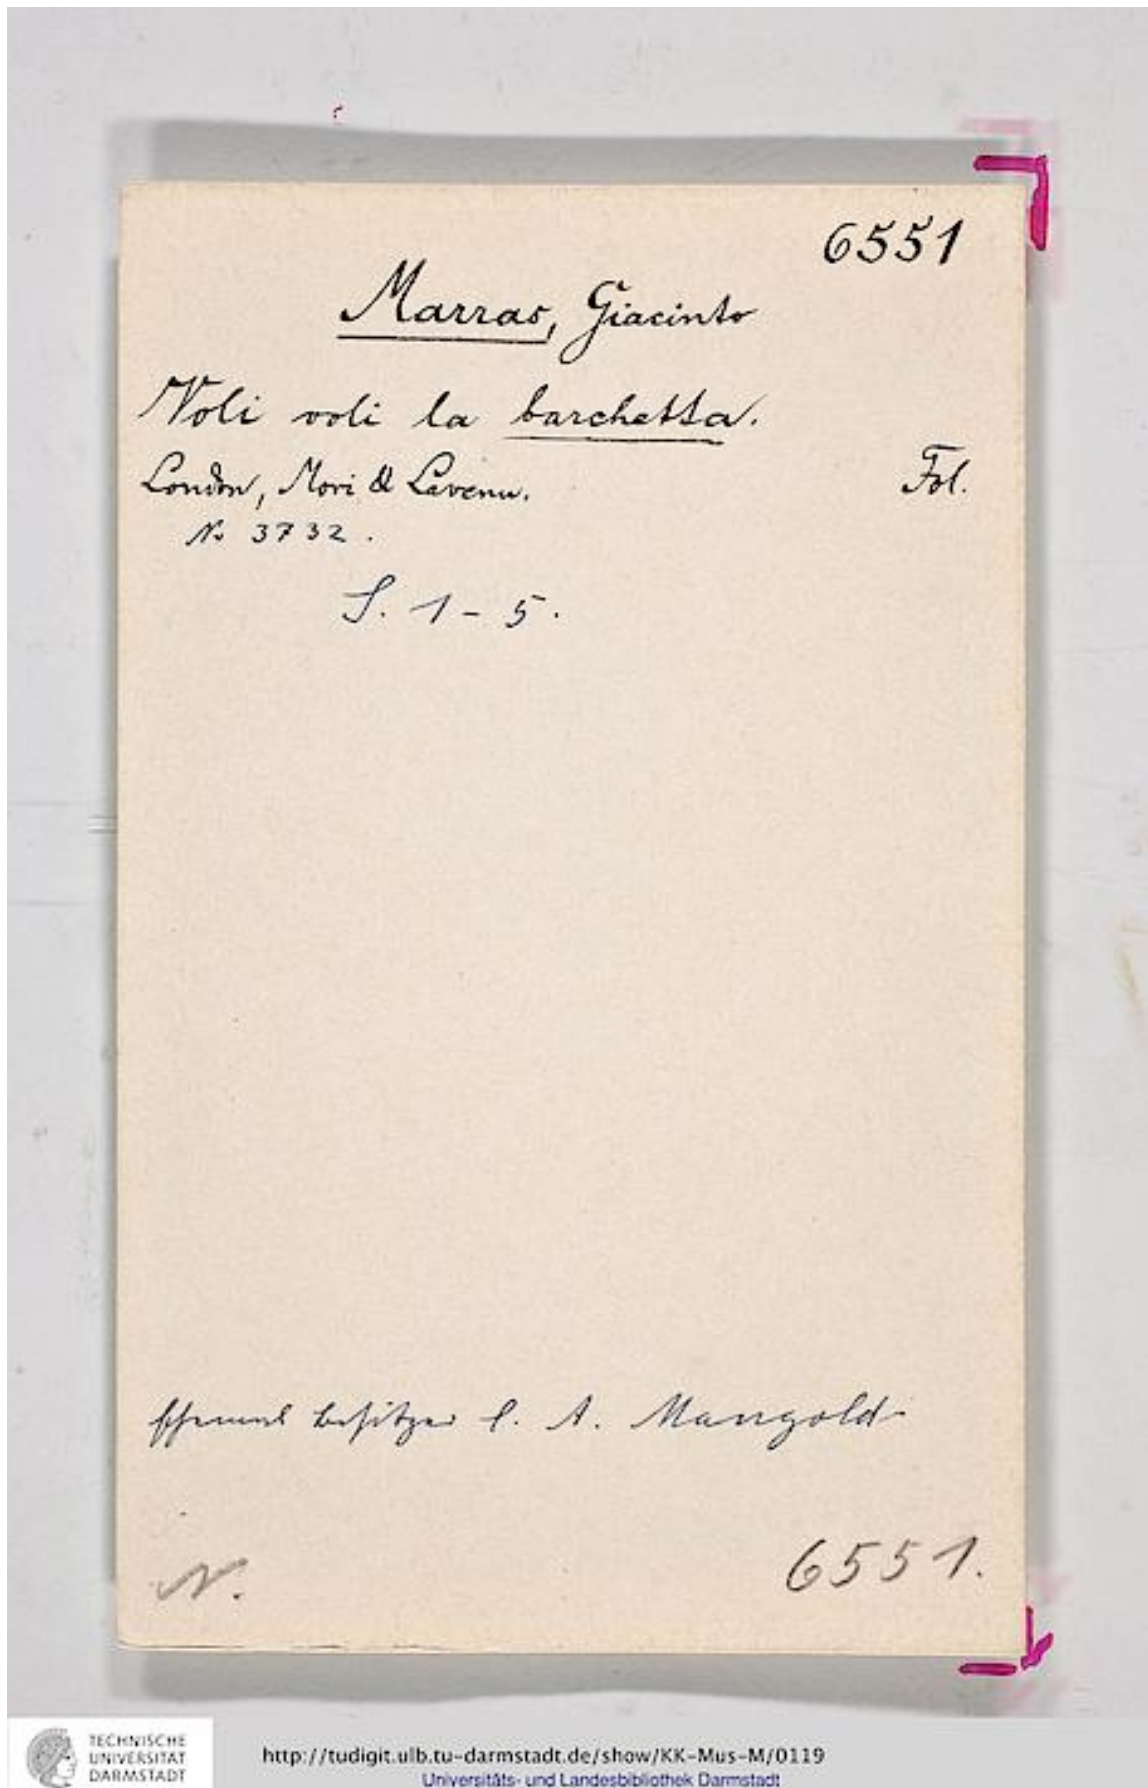 6551
Marras, Giacinto
Voli voli la barchetta.
London, Mori & Lavenu.
Fol.
No 3732.
S. 1-5.
Besitzer C. A. Mangold
N.
6551.
TECHNISCHE
UNIVERSITÄT
DARMSTADT
http://tudigit.ulb.tu-darmstadt.de/show/KK-Mus-M/0119
Universitäts- und Landesbibliothek Darmstadt